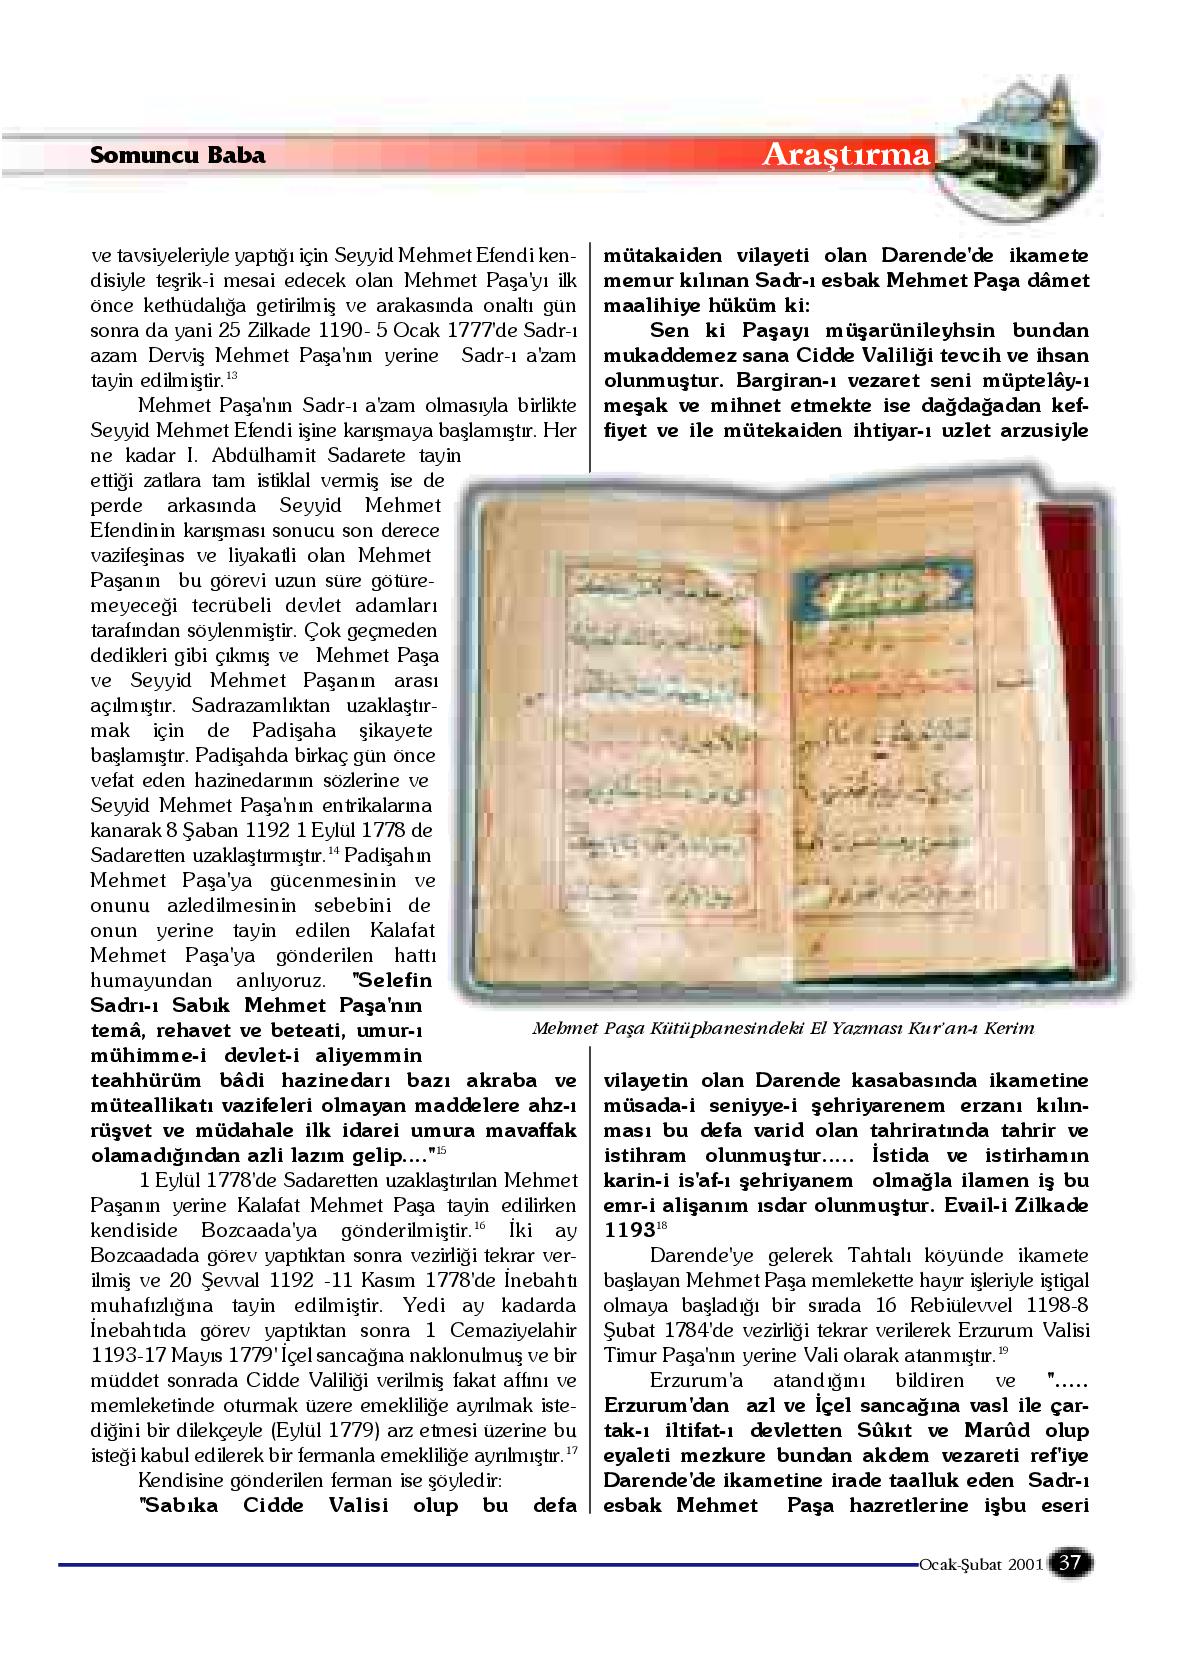 Somuncu Baba
Araştırma
ve tavsiyeleriyle yaptığı için Seyyid Mehmet Efendi ken-
disiyle teşrik-i mesai edecek olan Mehmet Paşa'yı ilk
önce kethüdalığa getirilmiş ve arakasında onaltı gün
sonra da yani 25 Zilkade 1190- 5 Ocak 1777'de Sadr-ı
azam Derviş Mehmet Paşa'nın yerine Sadr-ı a'zam
tayin edilmiştir.13
Mehmet Paşa'nın Sadr-ı a'zam olmasıyla birlikte
Seyyid Mehmet Efendi işine karışmaya başlamıştır. Her
ne kadar I. Abdülhamit Sadarete tayin
ettiği zatlara tam istiklal vermiş ise de
perde arkasında Seyyid Mehmet
Efendinin karışması sonucu son derece
vazifeşinas ve liyakatli olan Mehmet
Paşanın bu görevi uzun süre götüre-
meyeceği tecrübeli devlet adamları
tarafından söylenmiştir. Çok geçmeden
dedikleri gibi çıkmış ve Mehmet Paşa
ve Seyyid Mehmet Paşanın arası
açılmıştır. Sadrazamlıktan uzaklaştır-
mak için de Padişaha şikayete
başlamıştır. Padişahda birkaç gün önce
vefat eden hazinedarının sözlerine ve
Seyyid Mehmet Paşa'nın entrikalarına
kanarak 8 Şaban 1192 1 Eylül 1778 de
Sadaretten uzaklaştırmıştır.14 Padişahın
Mehmet Paşa'ya gücenmesinin ve
onunu azledilmesinin sebebini de
onun yerine tayin edilen Kalafat
Mehmet Paşa'ya gönderilen hattı
humayundan anlıyoruz. "Selefin
Sadrı-ı Sabık Mehmet Paşa'nın
temâ, rehavet ve beteati, umur-ı
mühimme-i devlet-i aliyemmin
teahhürüm bâdi hazinedarı bazı akraba ve
müteallikatı vazifeleri olmayan maddelere ahz-ı
rüşvet ve müdahale ilk idarei umura mavaffak
olamadığından azli lazım gelip...."15
1 Eylül 1778'de Sadaretten uzaklaştırılan Mehmet
Paşanın yerine Kalafat Mehmet Paşa tayin edilirken
kendiside Bozcaada'ya gönderilmiştir.16 İki ay
Bozcaadada görev yaptıktan sonra vezirliği tekrar ver-
ilmiş ve 20 Şevval 1192 -11 Kasım 1778'de İnebahtı
muhafızlığına tayin edilmiştir. Yedi ay kadarda
İnebahtıda görev yaptıktan sonra 1 Cemaziyelahir
1193-17 Mayıs 1779' İçel sancağına naklonulmuş ve bir
müddet sonrada Cidde Valiliği verilmiş fakat affını ve
memleketinde oturmak üzere emekliliğe ayrılmak iste-
diğini bir dilekçeyle (Eylül 1779) arz etmesi üzerine bu
isteği kabul edilerek bir fermanla emekliliğe ayrılmıştır.17
Kendisine gönderilen ferman ise şöyledir:
"Sabıka Cidde Valisi olup bu defa
mütakaiden vilayeti olan Darende'de ikamete
memur kılınan Sadr-ı esbak Mehmet Paşa dâmet
maalihiye hüküm ki:
Sen ki Paşayı müşarünileyhsin bundan
mukaddemez sana Cidde Valiliği tevcih ve ihsan
olunmuştur. Bargiran-ı vezaret seni müptelây-ı
meşak ve mihnet etmekte ise dağdağadan kef-
fiyet ve ile mütekaiden ihtiyar-ı uzlet arzusiyle
Mehmet Paşa Kütüphanesindeki El Yazması Kur'an-ı Kerim
vilayetin olan Darende kasabasında ikametine
müsada-i seniyye-i şehriyarenem erzanı kılın-
ması bu defa varid olan tahriratında tahrir ve
istihram olunmuştur..... İstida ve istirhamın
karin-i is'af-ı şehriyanem olmağla ilamen iş bu
emr-i alişanım ısdar olunmuştur. Evail-i Zilkade
119318
Darende'ye gelerek Tahtalı köyünde ikamete
başlayan Mehmet Paşa memlekette hayır işleriyle iştigal
olmaya başladığı bir sırada 16 Rebiülevvel 1198-8
Şubat 1784'de vezirliği tekrar verilerek Erzurum Valisi
Timur Paşa'nın yerine Vali olarak atanmıştır.19
Erzurum'a atandığını bildiren ve ".....
Erzurum'dan azl ve İçel sancağına vasl ile çar-
tak-ı iltifat-ı devletten Sûkıt ve Marûd olup
eyaleti mezkure bundan akdem vezareti ref'iye
Darende'de ikametine irade taalluk eden Sadr-ı
esbak Mehmet Paşa hazretlerine işbu eseri
Ocak-Şubat 2001 37